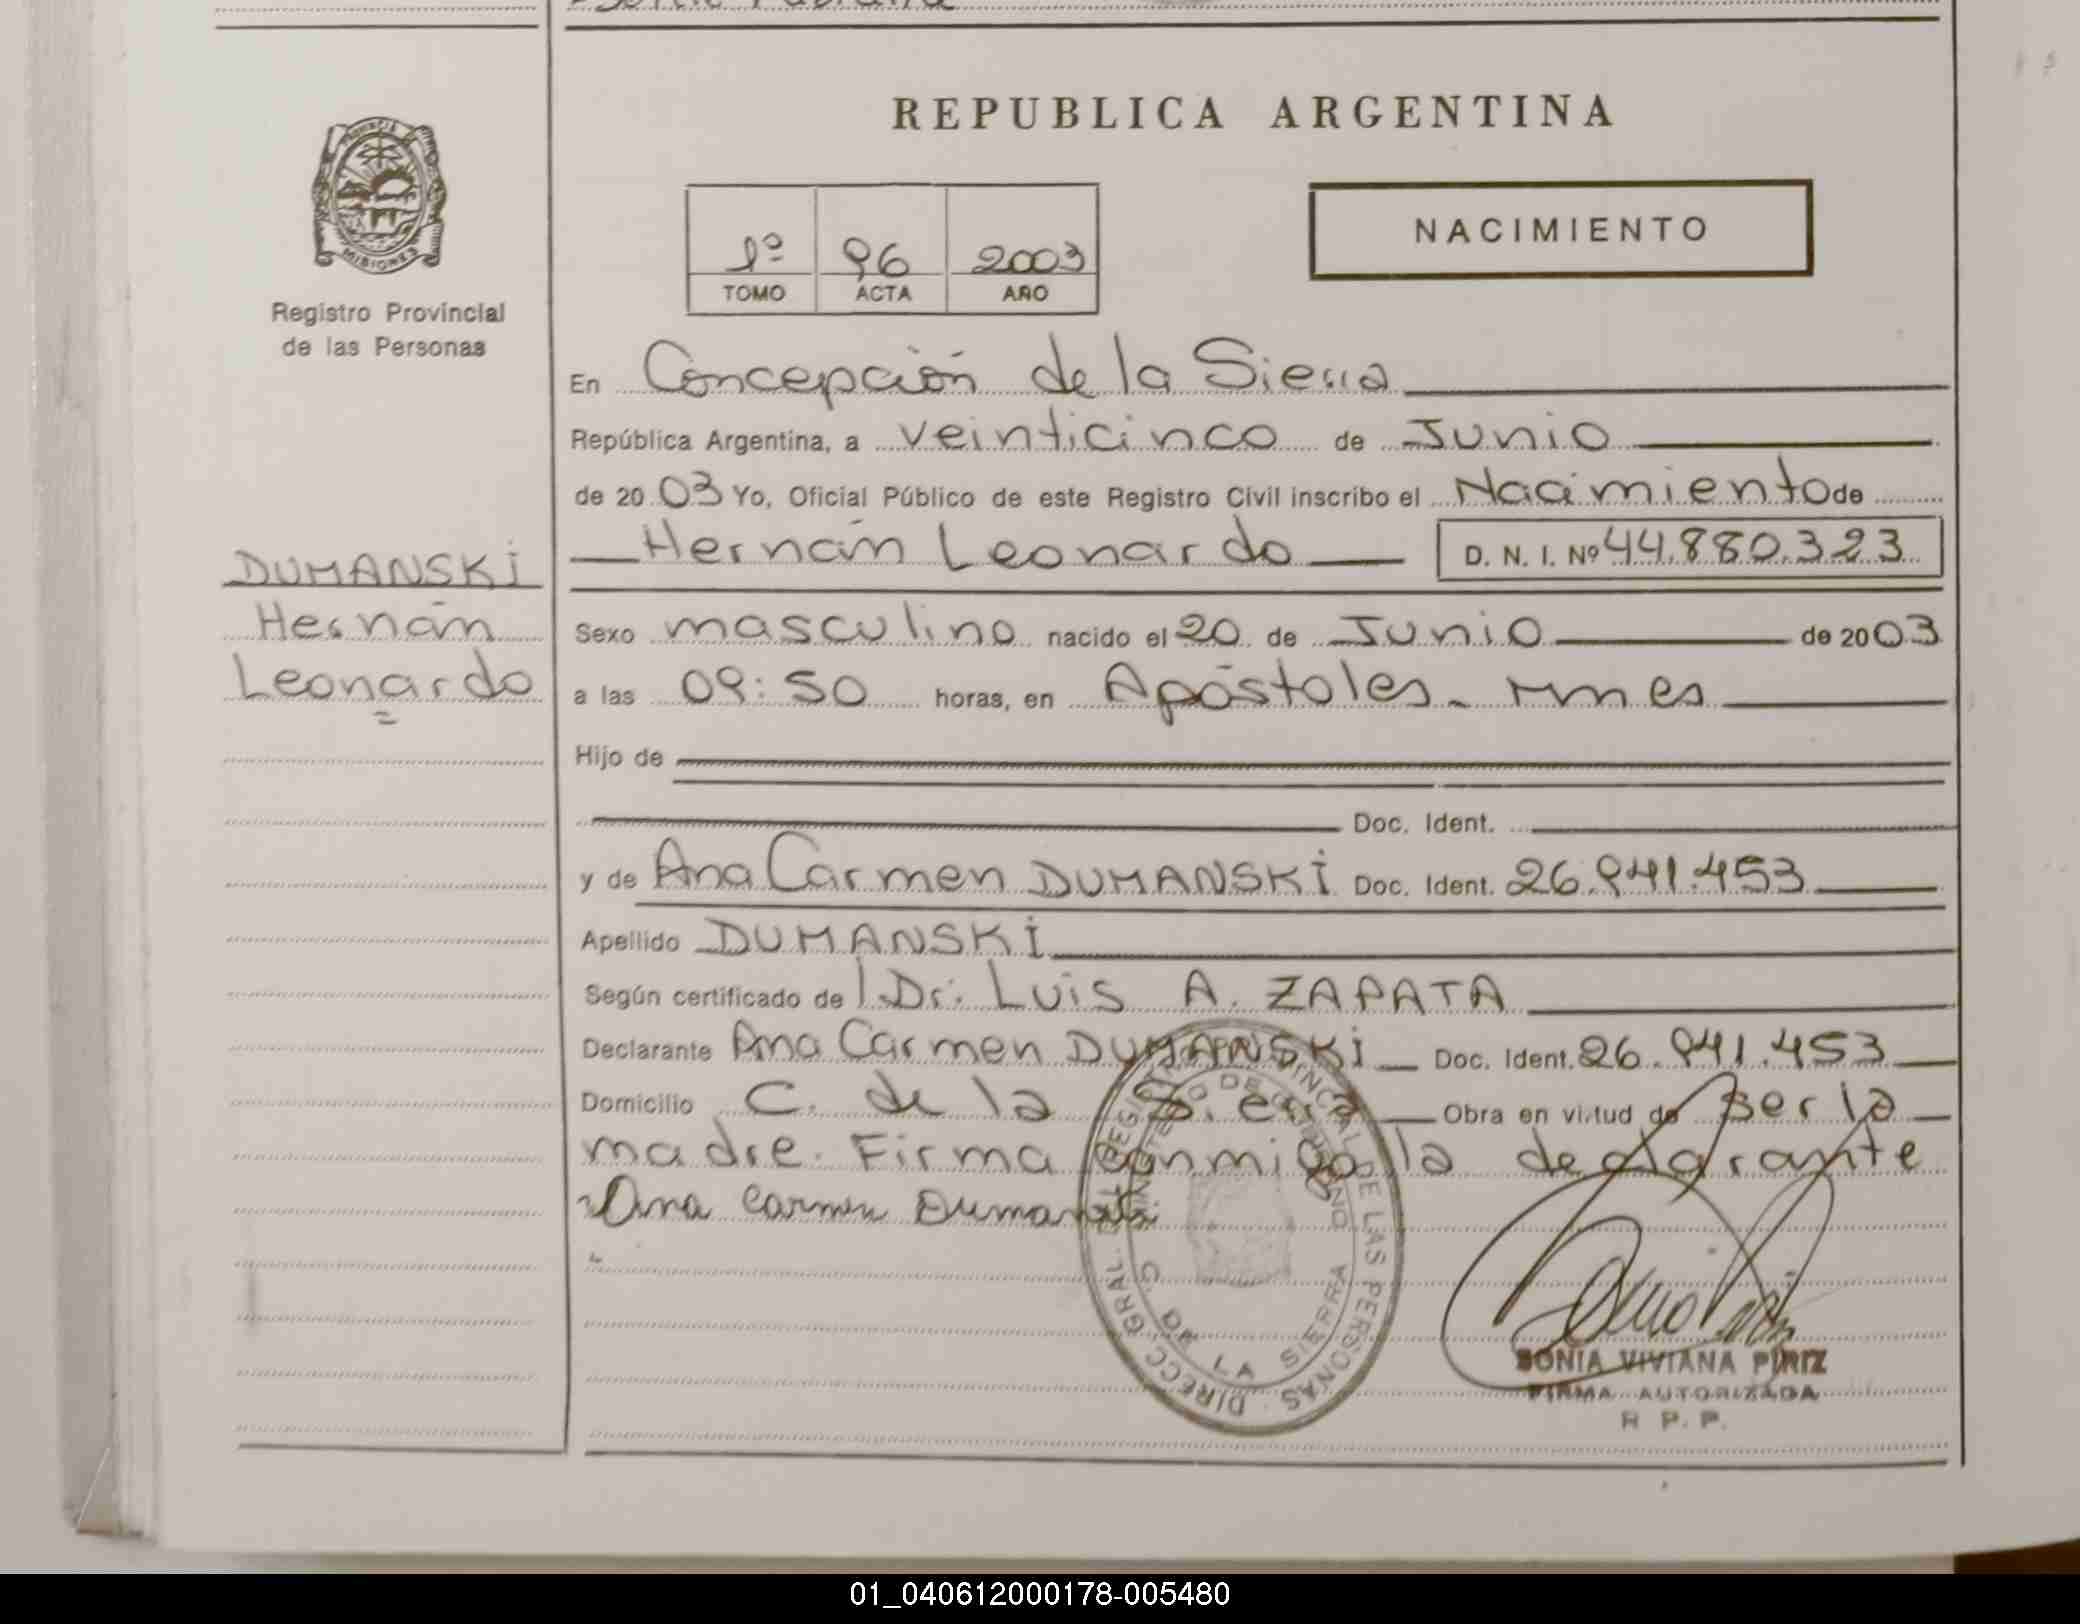 REPUBLICA ARGENTINA
PROVINCIA
MISIONES
Registro Provincial
de las Personas
1º 96 2003
TOMO ACTA AÑO
NACIMIENTO
En Concepción de la Sierra
República Argentina, a veinticinco de Junio
de 2003 Yo, Oficial Público de este Registro Civil inscribo el Nacimiento de
Hernán Leonardo D. N. I. Nº 44.880.323
DUMANSKI
Hernán
Leonardo
Sexo masculino nacido el 20 de Junio de 2003
a las 09:50 horas, en Apóstoles
Hijo de
Doc. Ident.
y de Ana Carmen DUMANSKI Doc. Ident. 26.941.453
Apellido DUMANSKI
Según certificado de l Dr. Luis A. ZAPATA
Declarante Ana Carmen DUMANSKI Doc. Ident. 26.941.453
Domicilio C. de la Sierra Obra en virtud de ser la
madre. Firma conmigo la declarante
Ana Carmen Dumanski
DIRECC GRAL. DEL REGISTRO PROVINCIAL DE LAS PERSONAS
MINISTERIO DE GOBIERNO
C. DE LA SIERRA
SONIA VIVIANA PIRIZ
FIRMA AUTORIZADA
R P. P.
01_040612000178-005480